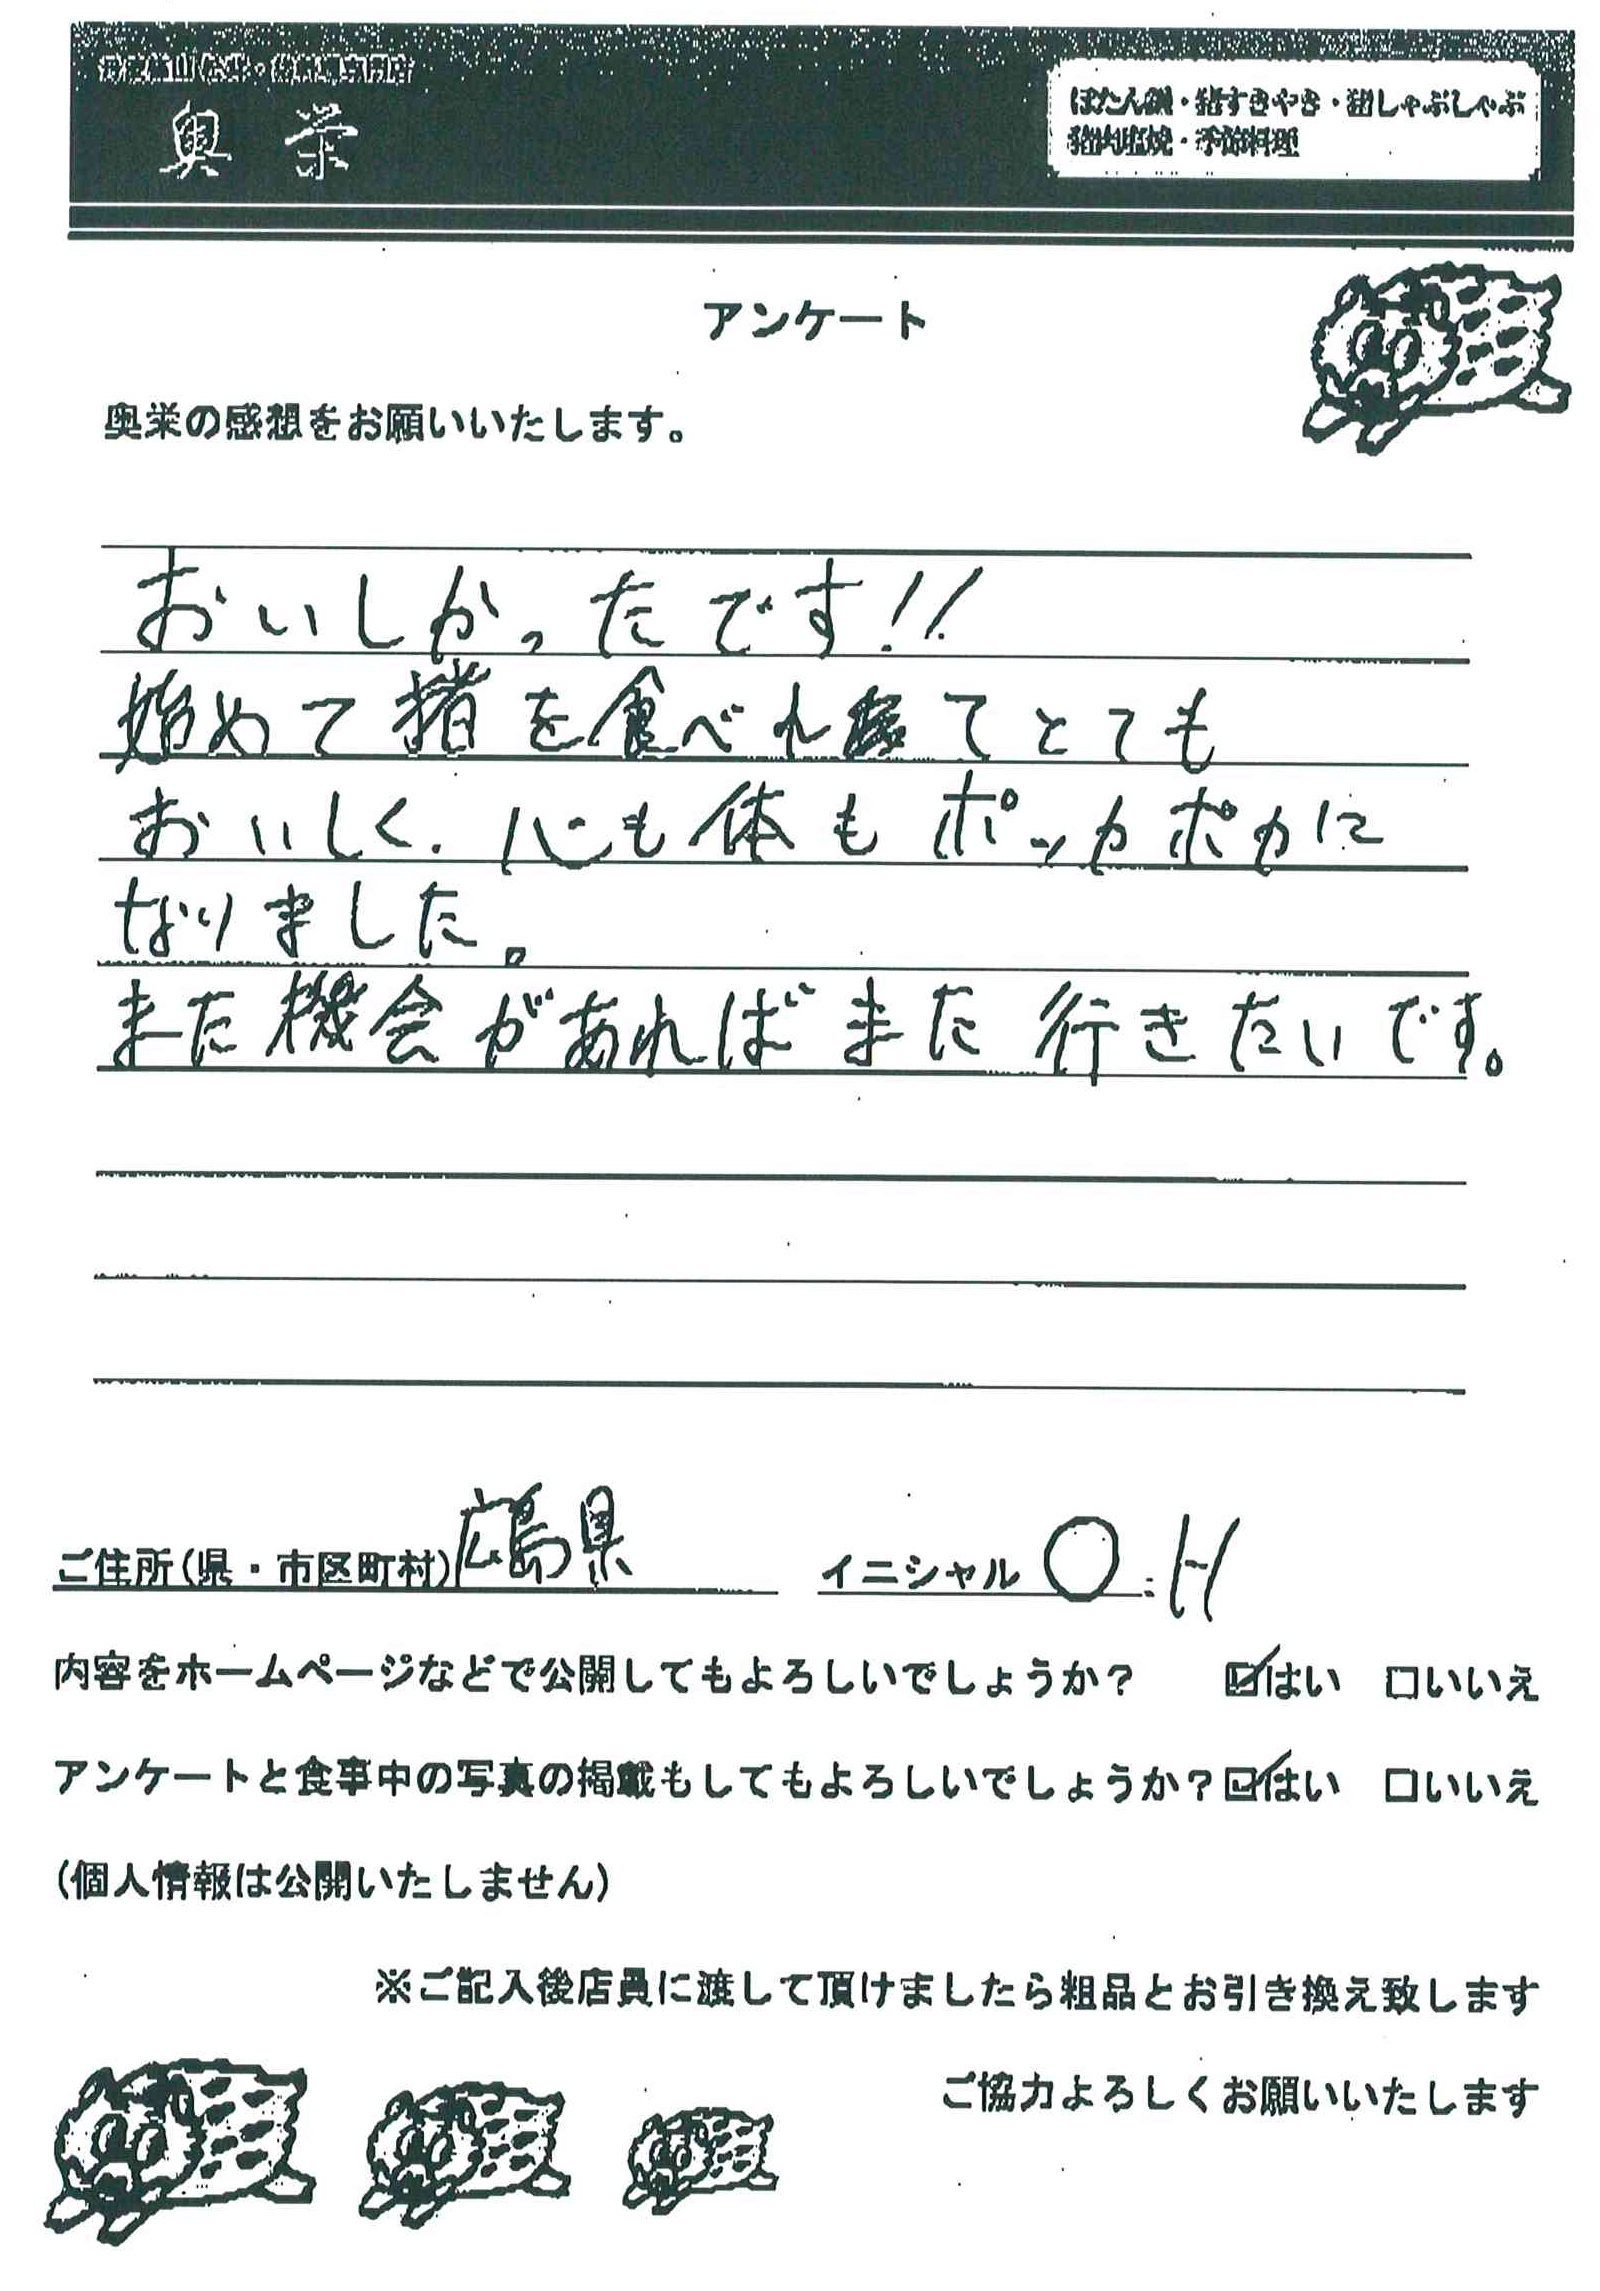 奥栄
ぼたん鍋・猪すきやき・猪しゃぶしゃぶ
猪肉塩焼・季節料理
アンケート
奥栄の感想をお願いいたします。
おいしかったです!!
始めて猪を食べれてとても
おいしく、心も体もポッカポカに
なりました。
また機会があればまた行きたいです。
ご住所(県・市区町村)広島県 イニシャル O:H
内容をホームページなどで公開してもよろしいでしょうか? ☑はい □いいえ
アンケートと食事中の写真の掲載もしてもよろしいでしょうか?☑はい □いいえ
(個人情報は公開いたしません)
※ご記入後店員に渡して頂けましたら粗品とお引き換え致します
ご協力よろしくお願いいたします